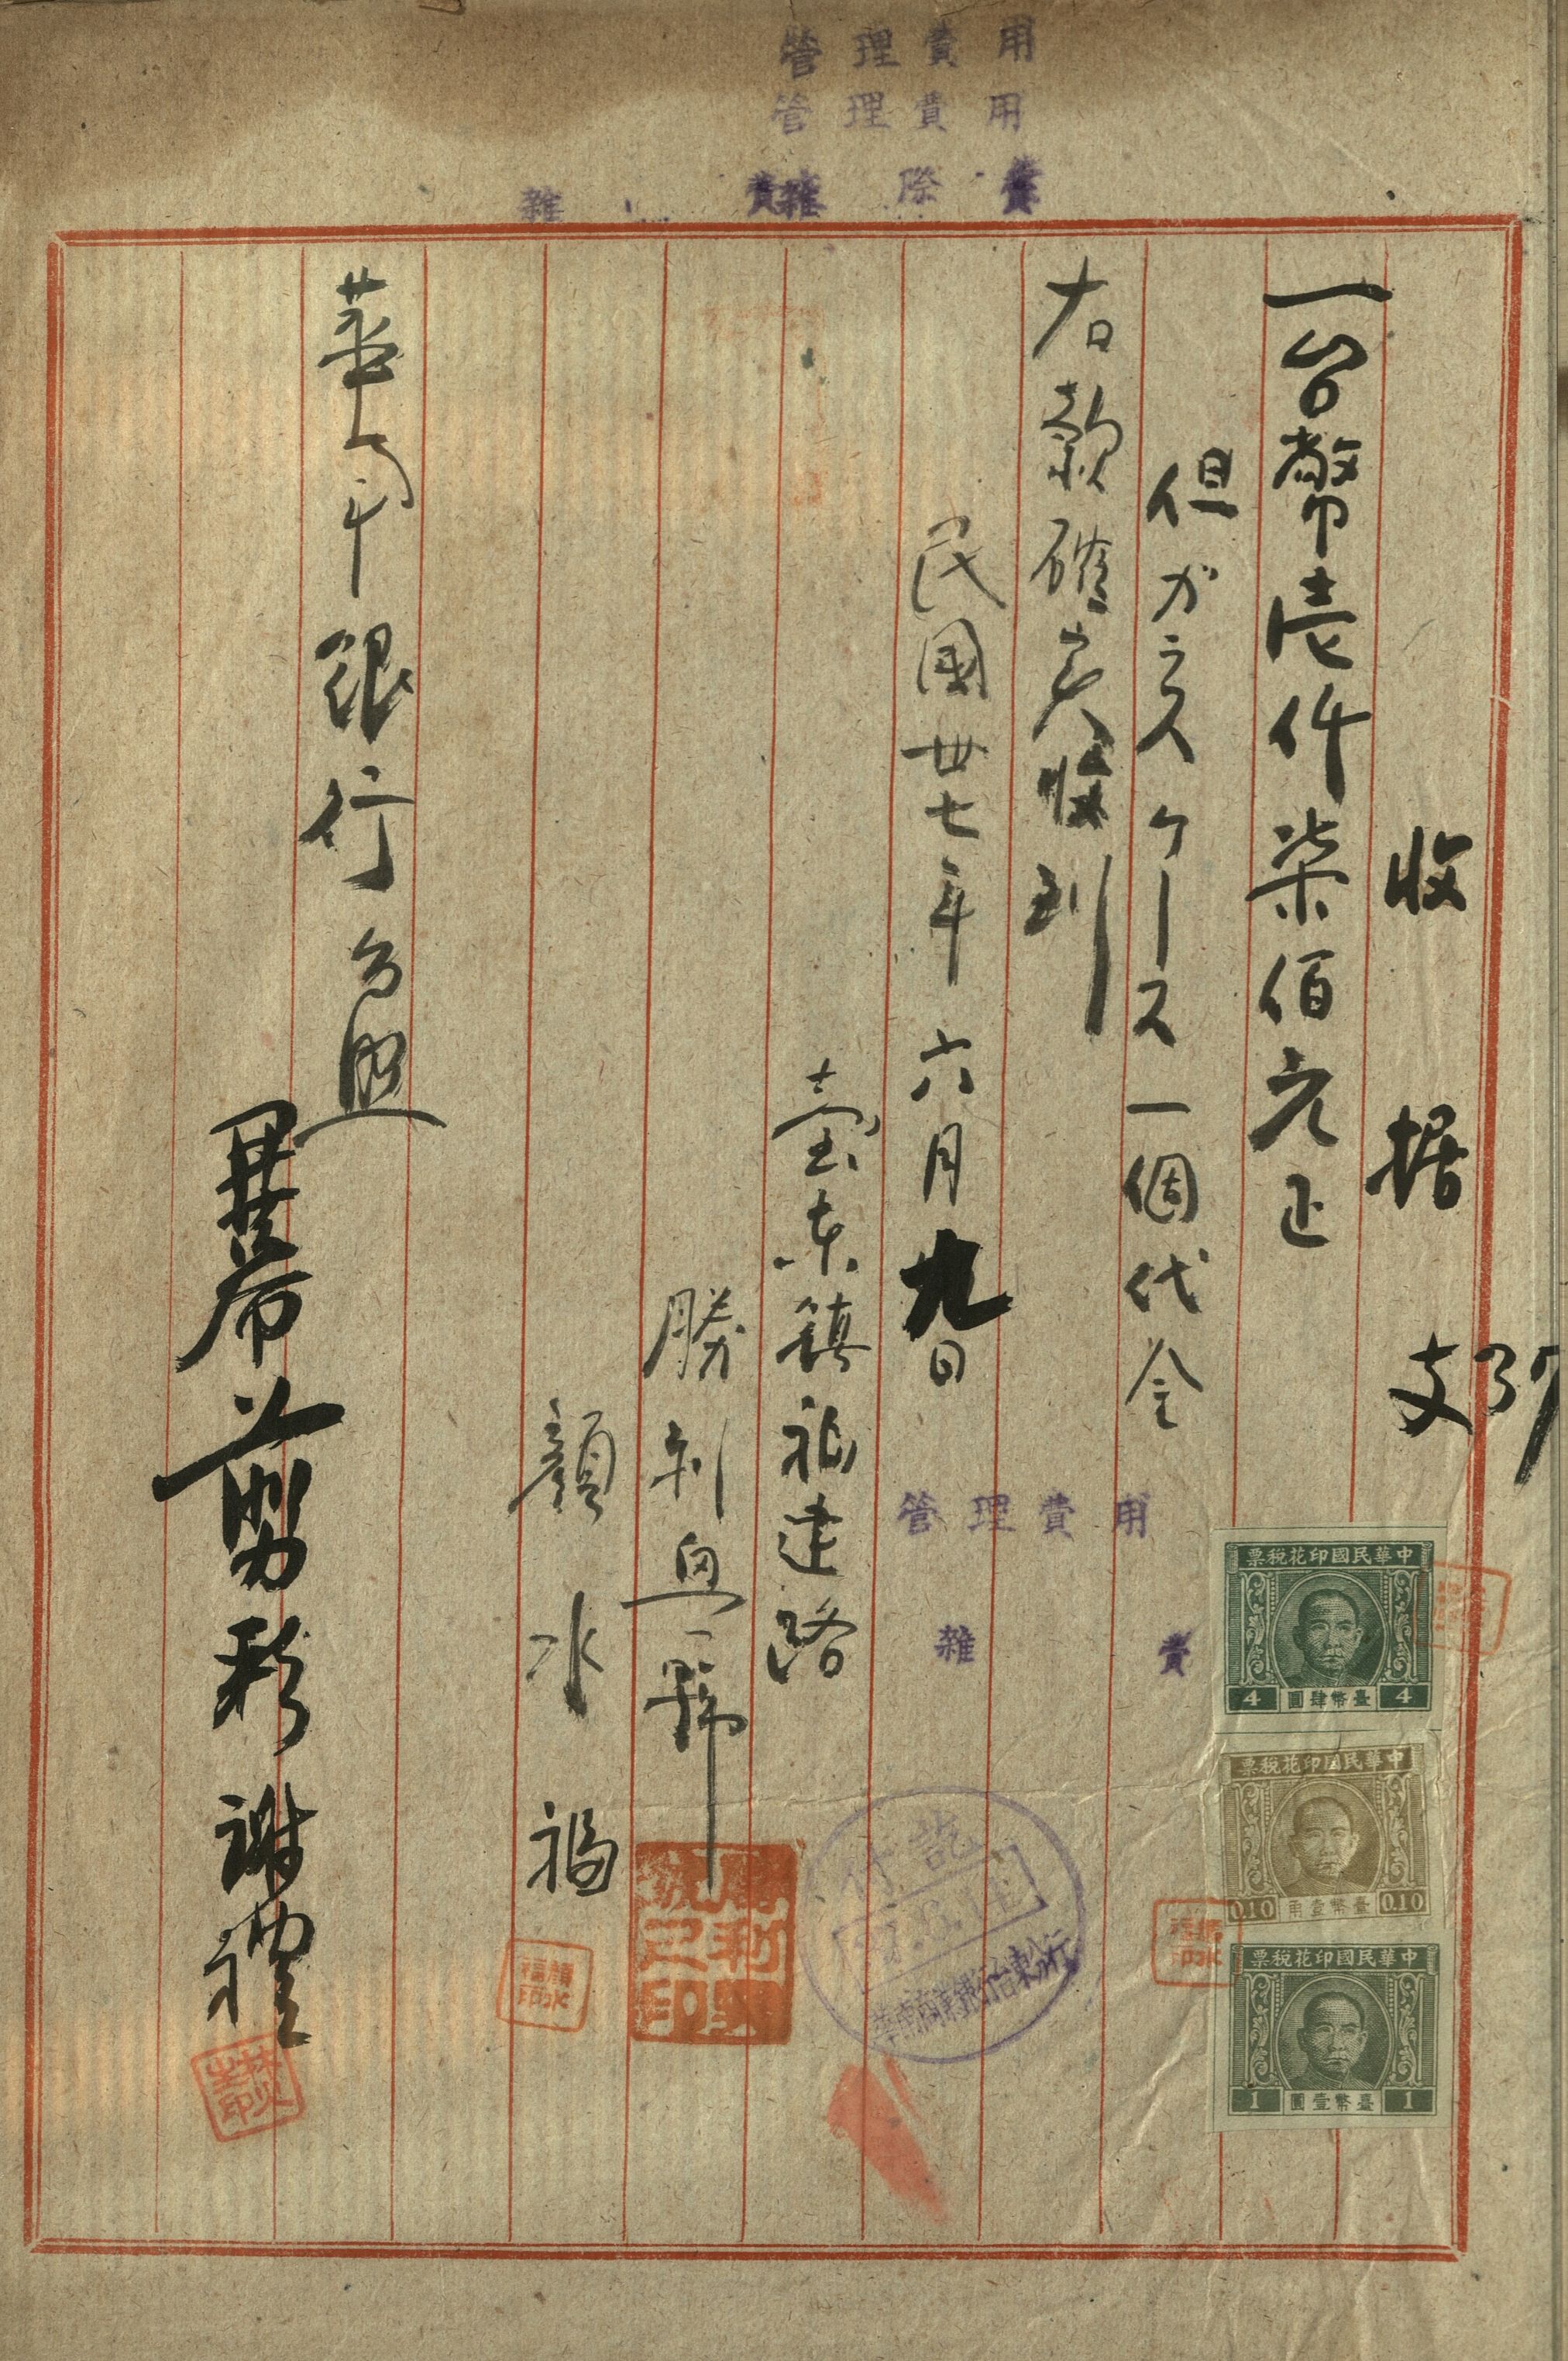 管理費用
管理費用
雜 費 雜 際 費
收據
支37
一台幣壱仟柒佰元正
但ガラスケース一個代金
右款確実收到
民國卅七年六月九日
臺東鎮福建路
勝利
號
顏水福
華南銀行台照
開幕剪彩謝禮
管理費用
雜 費
中華民國印花稅票
4 臺幣肆圓 4
中華民國印花稅票
0.10 臺幣壹角 0.10
中華民國印花稅票
1 臺幣壹圓 1
付訖
華南商業銀行台東分行
顏水福印
顏水福印